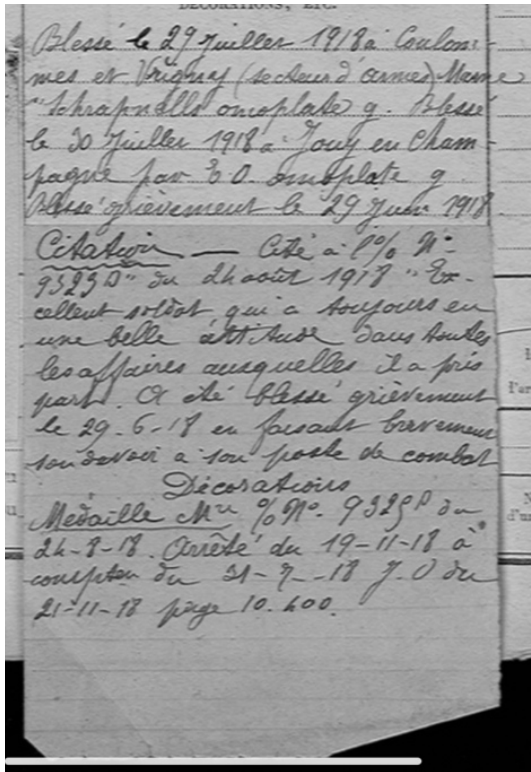 DÉCORATIONS, ETC.
Blessé le 29 Juillet 1918 à Coulom-
mes et Vrigny (secteur d'armes) Marne
"Schrapnells omoplate g. Blessé
le 30 Juillet 1918 à Jouy en Cham-
pagne par E O. omoplate g
Blessé grièvement le 29 Juin 1918
Citation — Cité à l'O/ No
9323 D" du 24 août 1918 "Ex-
cellent soldat qui a toujours eu
une belle attitude dans toutes
les affaires auxquelles il a pris
part. A été blessé grièvement
le 29-6-18 en faisant bravement
son devoir à son poste de combat
Décorations
Médaille Mre O/ No. 9325 D du
24-8-18. Arrêté du 19-11-18 à
compter du 31-7-18 J.O du
21-11-18 page 10.400.